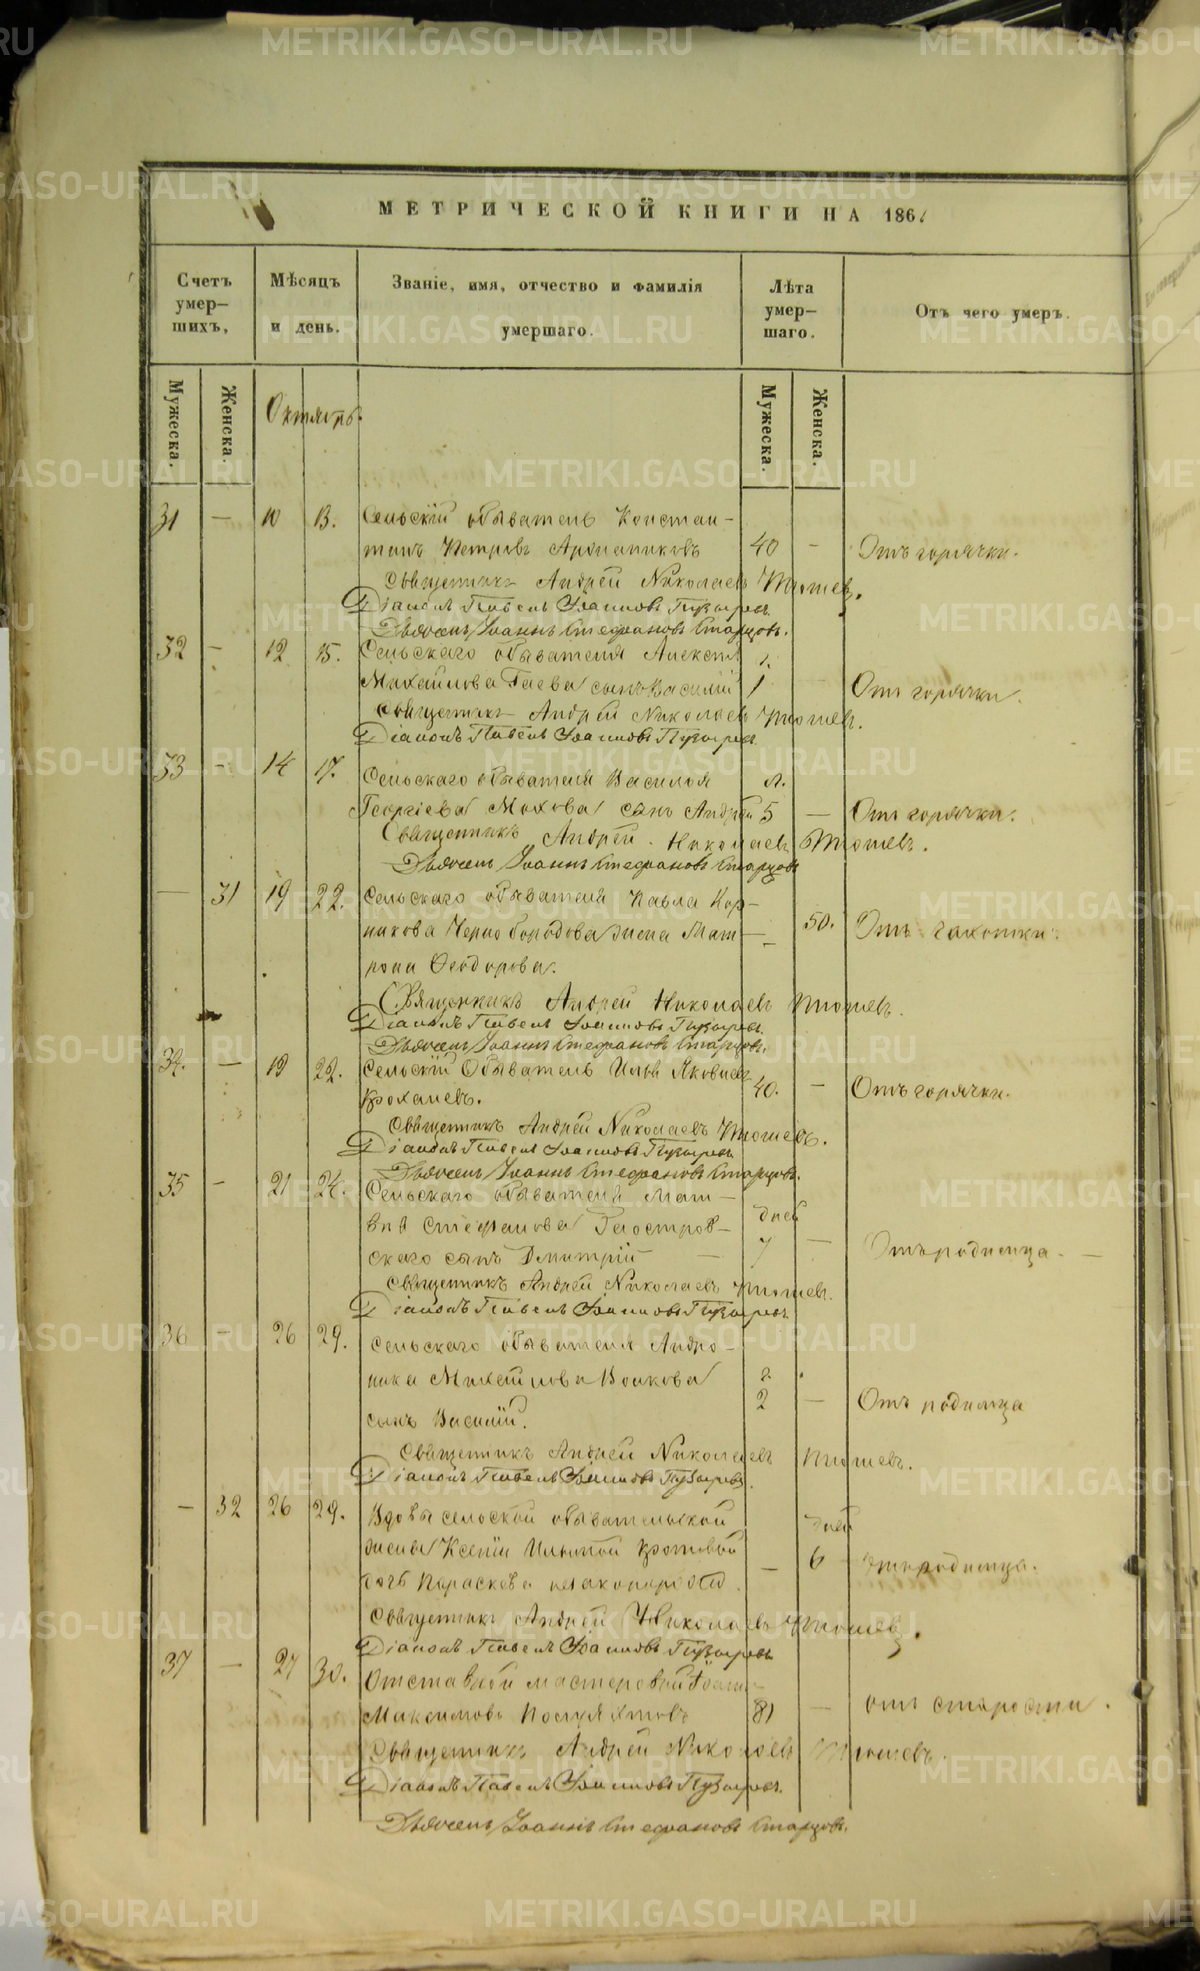 МЕТРИЧЕСКОЙ КНИГИ НА 186
Счетъ умер-шихъ,
Мѣсяцъ и день.
Званіе, имя, отчество и фамилія умершаго.
Лѣта умер-шаго.
Отъ чего умеръ.
Мужеска.
Женска.
Октябрь.
Мужеска.
Женска.
31 — 10 13. Сельскій обыватель Констан-
тинъ Петровъ 40 — Отъ горячки.
Священникъ Андрей Николаевъ
Діаконъ Павелъ Іоанновъ Пузыревъ
Дьячекъ Іоаннъ Стефановъ Старцовъ.
32 — 12 15. Сельскаго обывателя Алексѣя
Михайлова Гаева сынъ Василій 1 Отъ горячки.
Священникъ Андрей Николаевъ
Діаконъ Павелъ Іоанновъ Пузыревъ
33 — 14 17. Сельскаго обывателя Василья л.
Георгіева Мохова сынъ Андрей 5 — Отъ горячки.
Священникъ Андрей Николаевъ
Дьячекъ Іоаннъ Стефановъ Старцовъ
— 31 19 22. Сельскаго обывателя Павла Кор-
нилова Чернобородова жена Мат- — 50. Отъ чахотки.
рона Ѳеодорова.
Священникъ Андрей Николаевъ
Діаконъ Павелъ Іоанновъ Пузыревъ
Дьячекъ Іоаннъ Стефановъ Старцовъ.
34. — 19 22. Сельскій Обыватель Илья Яковлевъ
40. — Отъ горячки.
Священникъ Андрей Николаевъ
Діаконъ Павелъ Іоанновъ Пузыревъ
Дьячекъ Іоаннъ Стефановъ Старцовъ.
35 — 21 24. Сельскаго обывателя Мат-
вѣя Стефанова дней
скаго сынъ Дмитрій — 7 — Отъ родимца. —
Священникъ Андрей Николаевъ
Діаконъ Павелъ Іоанновъ Пузыревъ
36 — 26 29. Сельскаго обывателя Андро-
ника Михайлова Волкова
сынъ Василій. 2 — Отъ родимца
Священникъ Андрей Николаевъ
Діаконъ Павелъ Іоанновъ Пузыревъ
— 32 26 29. Вдовы сельской обывательской дней
жены Ксеніи Ильиной — 6 Отъ родимца.
дочь Параскева незаконорожд.
Священникъ Андрей Николаевъ
Діаконъ Павелъ Іоанновъ Пузыревъ
37 — 27 30. Отставной мастеровой Іоаннъ
Максимовъ 81 — отъ старости.
Священникъ Андрей Николаевъ
Діаконъ Павелъ Іоанновъ Пузыревъ.
Дьячекъ Іоаннъ Стефановъ Старцовъ.
METRIKI.GASO-URAL.RU